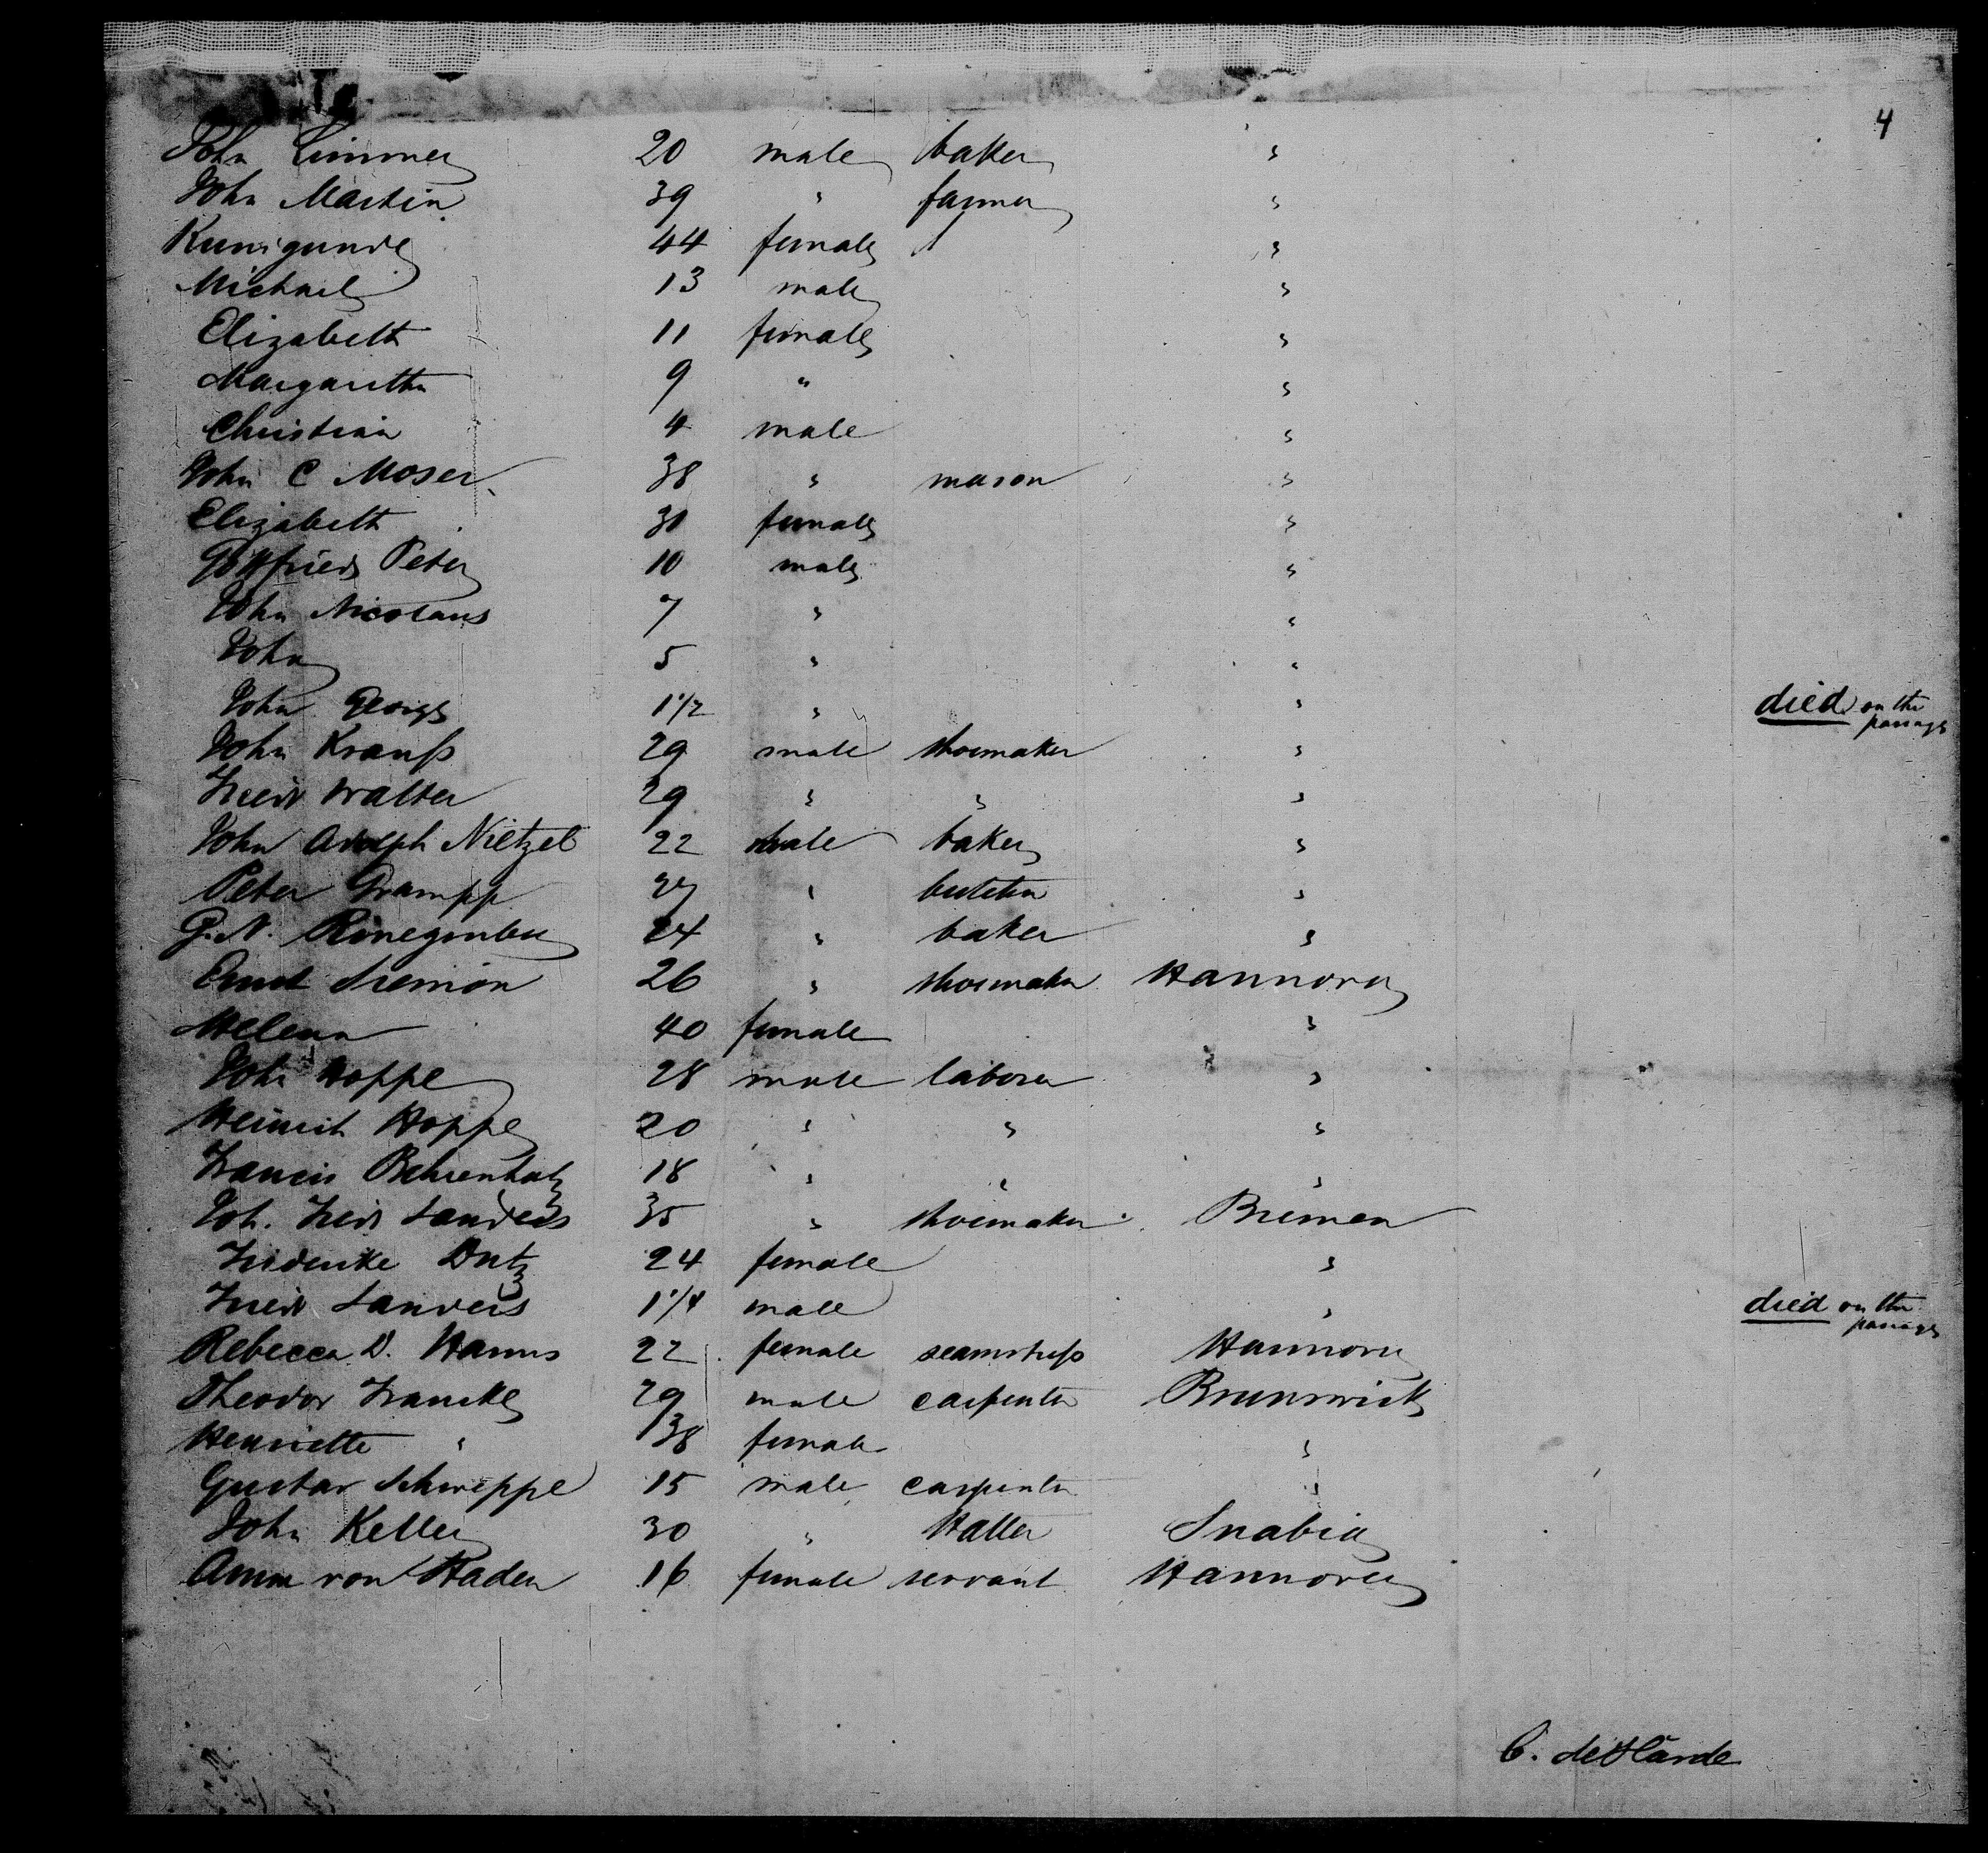 4
John Limmer 20 male baker "
John Martin 39 " farmer "
Kunigunde 44 female "
Michael 13 male "
Elizabeth 11 female "
Margaretha 9 " "
Christian 4 male "
John C Moser 38 " mason "
Elizabeth 30 female "
Gottfried Peter 10 male "
John Nicolaus 7 " "
John 5 " "
John George 1 1/2 " " died on the passage
John Krauß 29 male shoemaker "
Friedr Walter 29 " " "
John Adolph Nietzel 22 male baker "
Peter Grampp 27 " butcher "
G. N. 24 " baker "
Ernst 26 " shoemaker Hannover
Helena 40 female "
Joh Hoppe 28 male laborer "
Heinrich Hoppe 20 " " "
Francis 18 " " "
Joh. Friedr Sanders 35 " shoemaker Bremen
Friderike 24 female "
Friedr Sanders 1 1/4 male " died on the passage
Rebecca D. Harms 22 female seamstreß Hannover
Theodor Francke 29 male carpenter Brunswick
Henriette " 38 female "
Gustav Schweppe 15 male carpenter "
John Keller 30 " Suabia
Anna von Staden 16 female servant Hannover